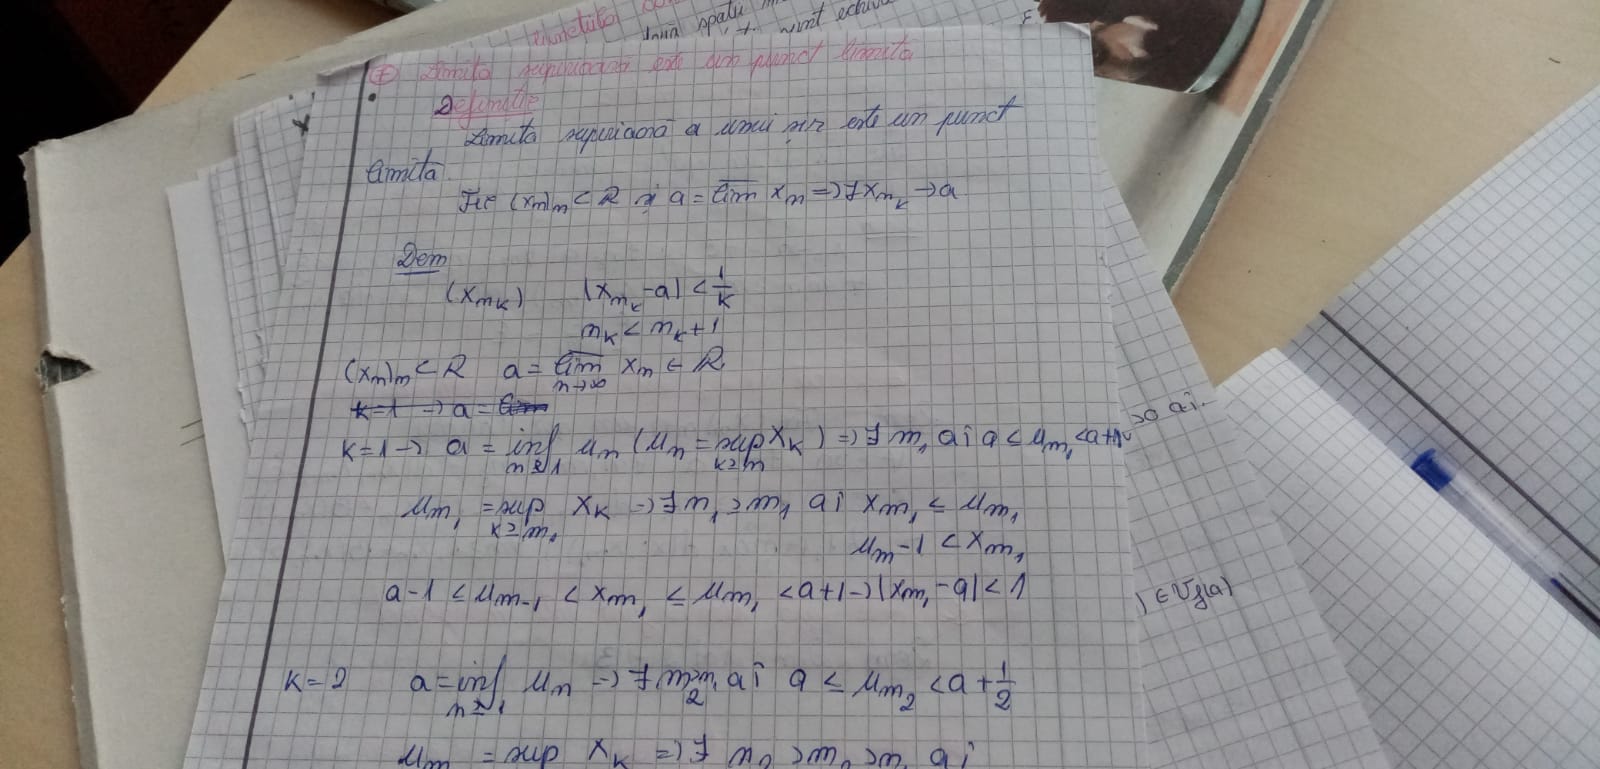 punctului
două spații
sunt echiva
Limita superioară este un punct limită
Definiție
Limita superioară a unui șir este un punct
limită.
Fie (xn)n ⊂ R și a = lim xn => ∃ xnk → a
Dem
(xnk) |xnk - a| < 1/k
nk < nk+1
(xn)n ⊂ R a = lim n→∞ xn ∈ R
k=1 → a = lim
k=1 → a = inf n≥1 un (un = sup k≥n xk) => ∃ m1 aî a ≤ um1 < a+1
>0 aî.
um1 = sup k≥m1 xk → ∃ n1 ≥ m1 aî xn1 ≤ um1
um-1 < xn1
a-1 ≤ um-1 < xn1 ≤ um1 < a+1 → |xn1 - a| < 1
) ∈ Vf(a)
k=2 a = inf n≥1 un → ∃ m2>n1 aî a ≤ um2 < a + 1/2
um = sup xk => ∃ n2 > m2 > n1 aî